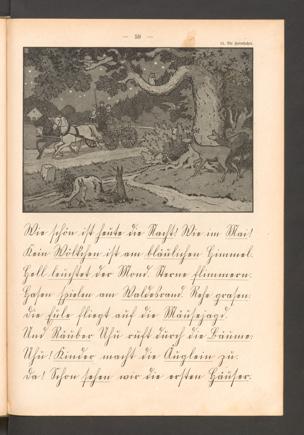 — 59 —
Wie schön ist heute die Nacht! Wie im Mai!
Kein Wölkchen ist am bläulichen Himmel.
Hell leuchtet der Mond. Sterne flimmern.
Hasen spielen am Waldesrand. Rehe grasen.
Die Eule fliegt auf die Mäusejagd.
Und Räuber Uhu ruft durch die Bäume:
Uhu! Kinder macht die Äuglein zu.
Da! Schon sehen wir die ersten Häuser.